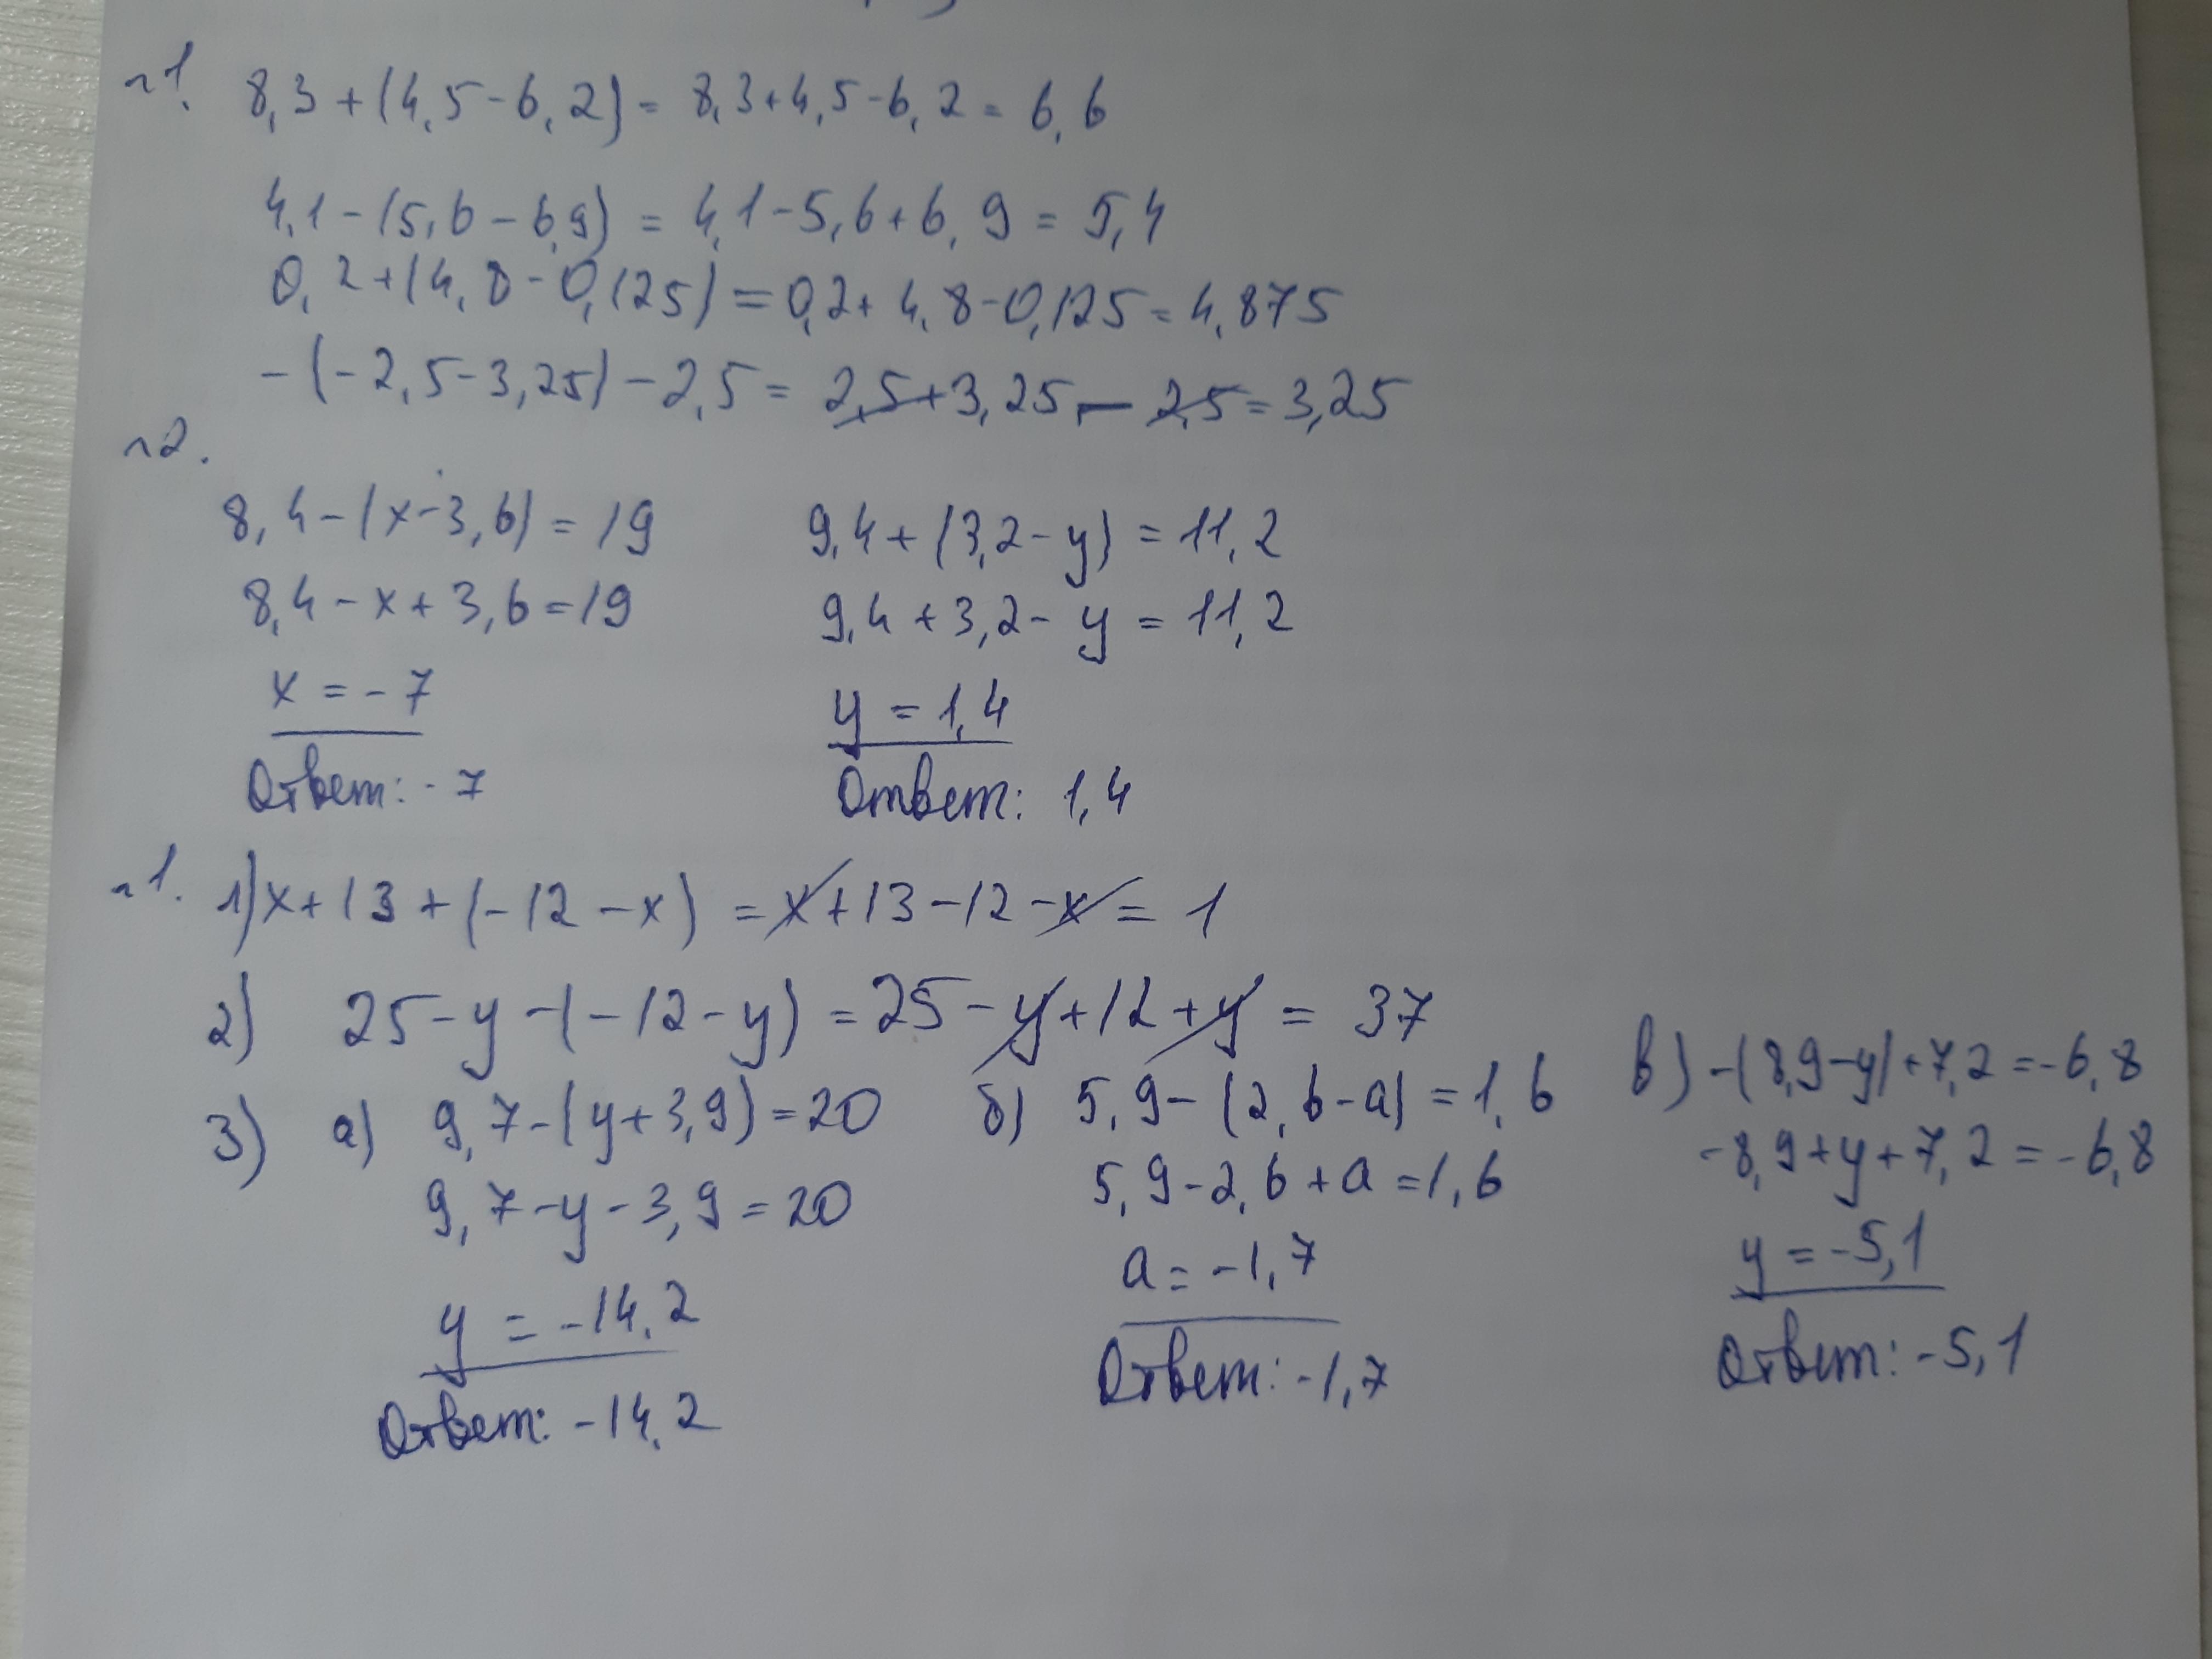 №1. 8,3+(4,5-6,2)= 8,3+4,5-6,2= 6,6
4,1-(5,6-6,9) = 4,1-5,6+6,9 = 5,4
0,2+(4,8-0,125)=0,2+4,8-0,125=4,875
-(-2,5-3,25)-2,5= 2,5+3,25-2,5=3,25
№2.
8,4-(x-3,6)=19
8,4-x+3,6=19
x=-7
Ответ: -7
9,4+(3,2-y)=11,2
9,4+3,2-y=11,2
y=1,4
Ответ: 1,4
№1. 1) x+13+(-12-x) = x+13-12-x= 1
2) 25-y-(-12-y) =25-y+12+y = 37
3) а) 9,7-(y+3,9)=20
9,7-y-3,9=20
y=-14,2
Ответ: -14,2
б) 5,9-(2,6-a)=1,6
5,9-2,6+a=1,6
a=-1,7
Ответ: -1,7
в) -(8,9-y)+7,2=-6,8
-8,9+y+7,2=-6,8
y=-5,1
Ответ: -5,1